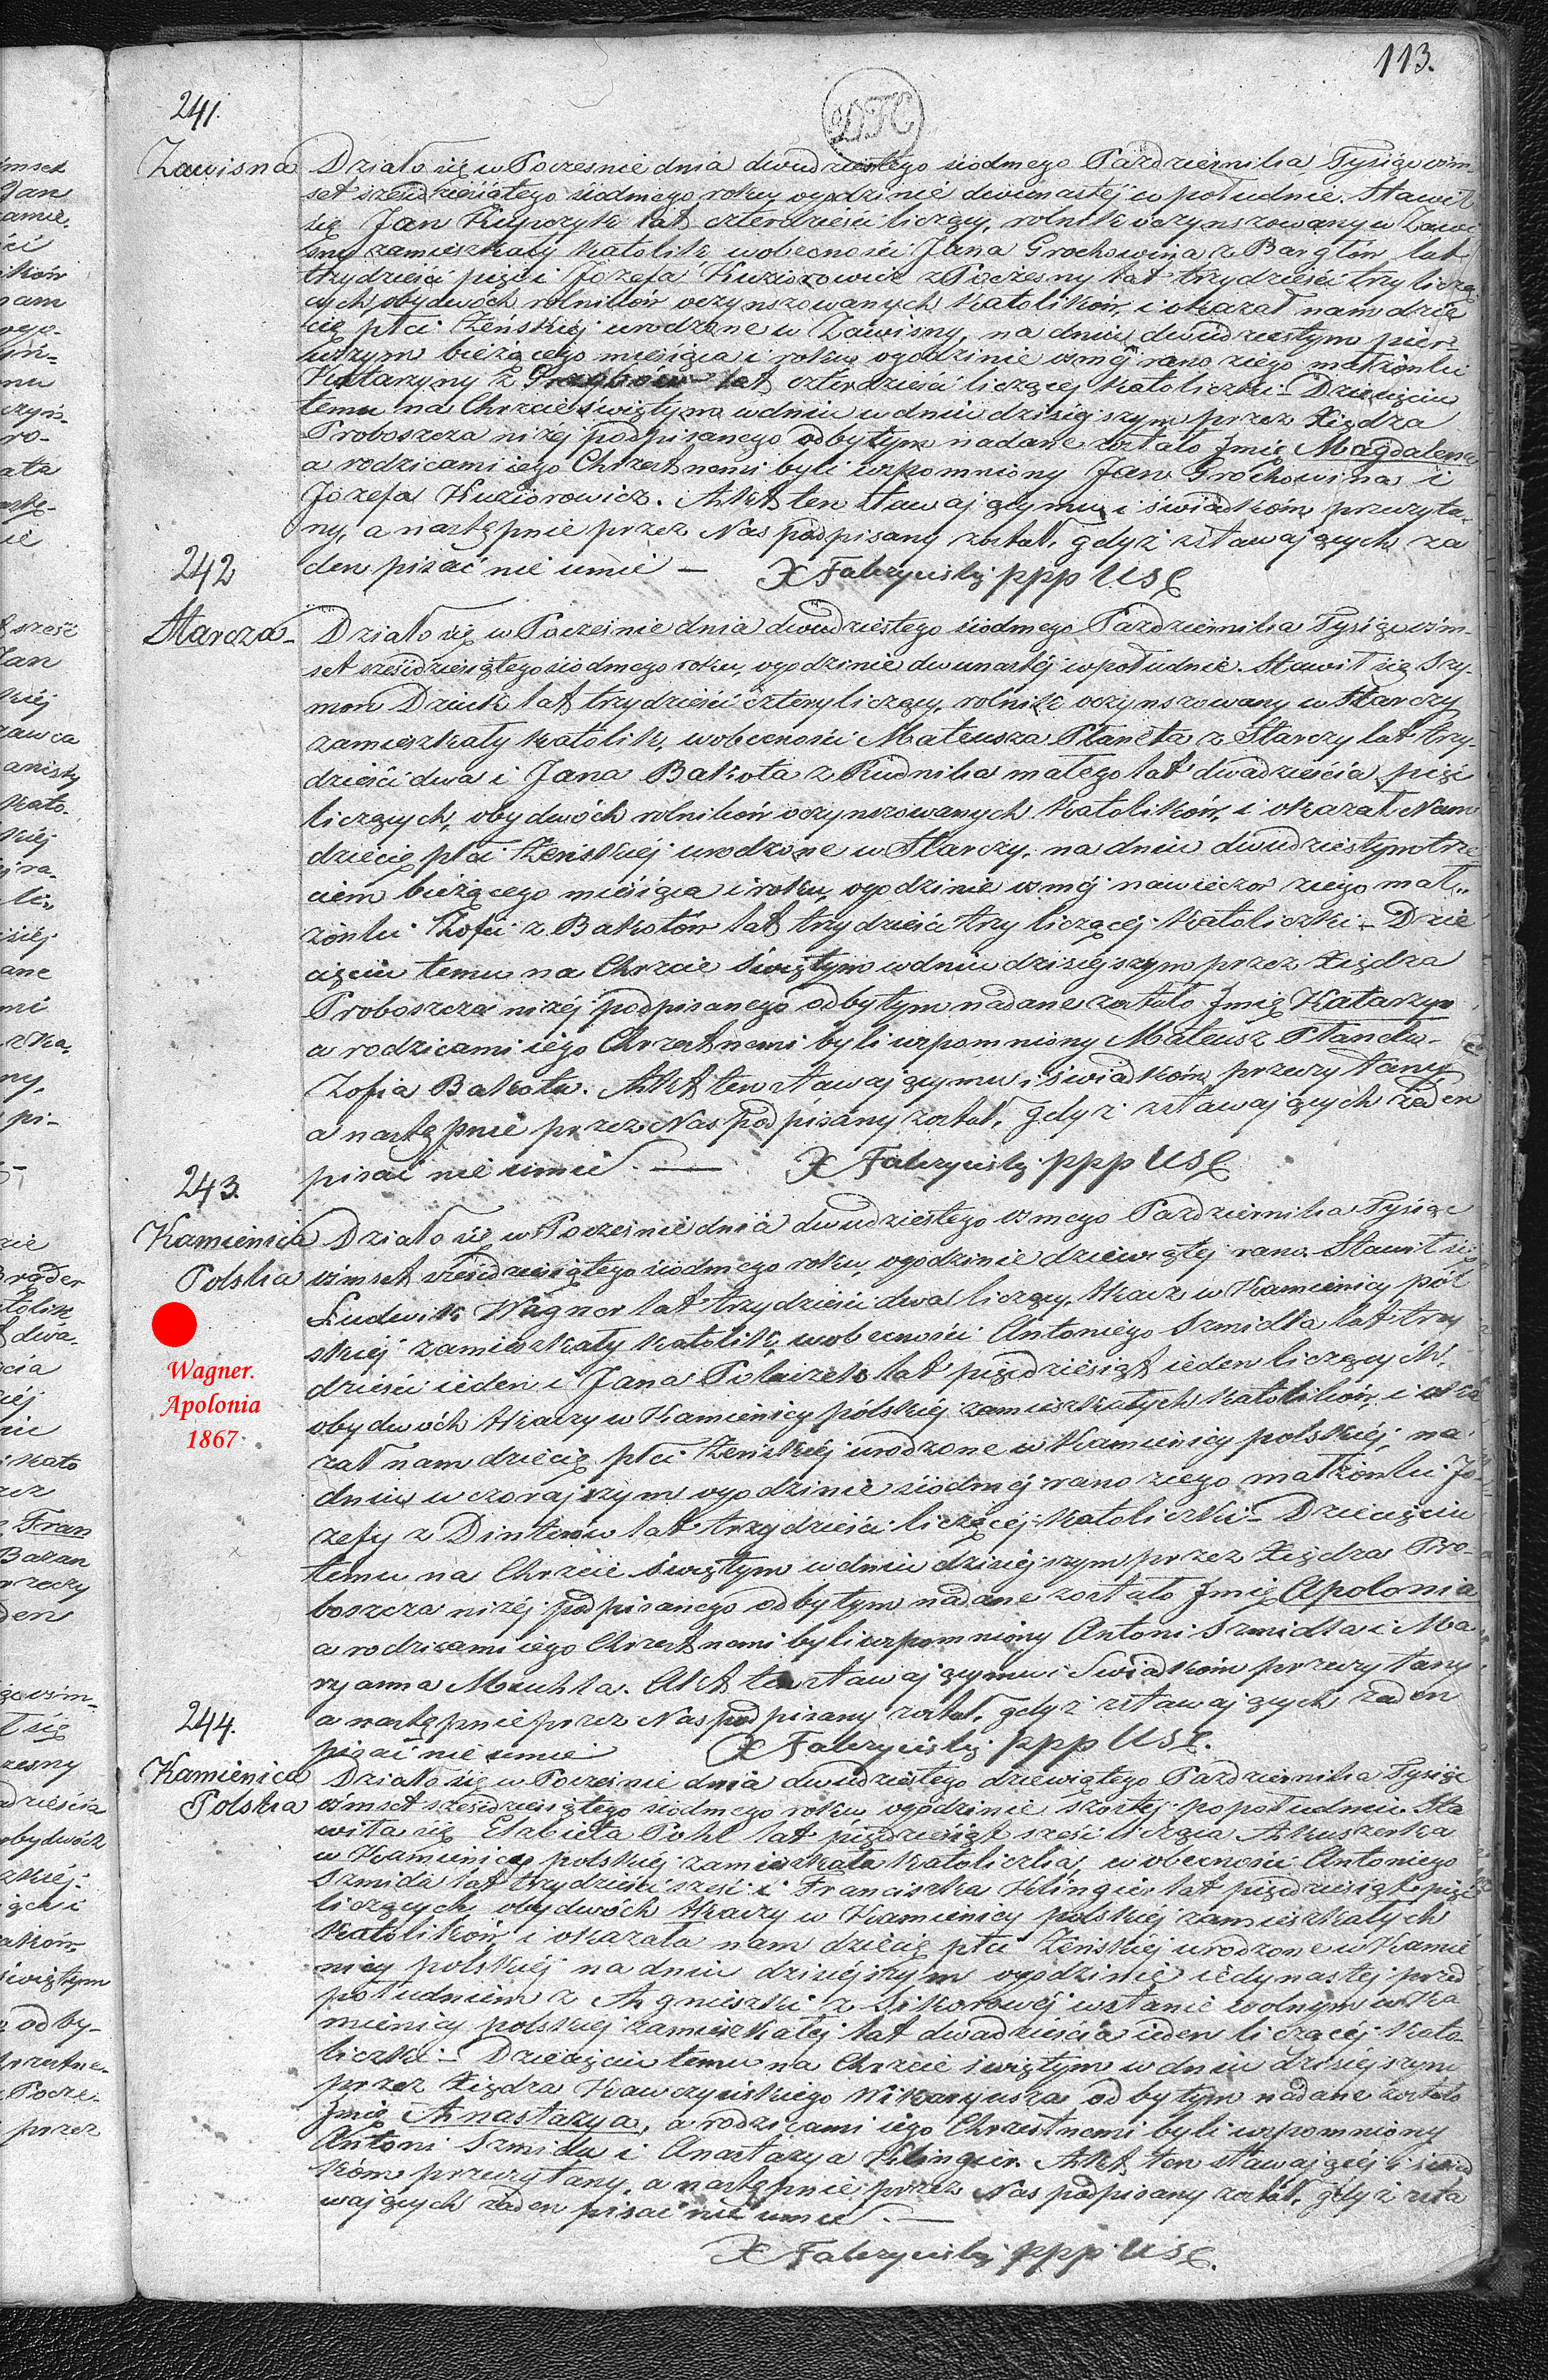 113.
DTC
241.
Zawisna
Działo się w Poczesnie dnia dwudziestego siodmego Pazdziernika Tysiąc osm-
set szesdziesiątego siodmego roku, ogodzinie dwunastéj wpołudnie. Stawił
się Jan Kupczyk lat czterdzieści liczący, rolnik oczynszowany w Zawi
sny zamieszkały katolik, wobecności Jana Grochowina z Bargłów, lat
trzydzieści pięć i Józefa Kuziorowicz z Poczesny lat trzydzieści trzy liczą
cych, obydwóch rolników oczynszowanych katolików, i okazał nam dzie
cię płci Żeńskiéj urodzone w Zawisny, na dniu dwudziestym pier
wszym bieżącego miesiąca i roku, ogodzinie osméj rano ziego małżonki
Katarzyny z lat czterdzieści liczącej katoliczki – Dziecięciu
temu na Chrzcie świętym wdniu wdniu dzisiejszym przez Xiędza
Proboszcza niżéj podpisanego odbytym nadane zostało Jmię Magdalena
a rodzicami iego Chrzestnemi byli wspomniony Jan Grochowina i
Józefa Kuziorowicz. Akt ten stawaiącemu i świadkóm przeczyta
ny, a następnie przez Nas podpisany został, gdyż zstawaiących ża
den pisać nie umie – X Fabrycisky ppp USC
242
Starcza –
Działo się w Poczesnie dnia dwudziestego siodmego Pazdziernika Tysiąc osm-
set szesdziesiątego siodmego roku, ogodzinie dwunastéj wpołudnie. Stawił się Szy-
mon Dziuk lat trzydzieści cztery liczący, rolnik oczynszowany w Starczy
zamieszkały katolik, wobecności Mateusza Planeta z Starczy lat trzy-
dzieści dwa i Jana Bakota z Rudnika małego lat dwadzieścia pięć
liczących, obydwóch rolników oczynszowanych katolików, i okazał Nam
dziecię płci Żeńskiéj urodzone w Starczy, na dniu dwudziestym trze
ciem bieżącego miesiąca i roku, ogodzinie osméj nawieczor ziego mał-
żonki Zofii z Bakotów lat trzydzieści trzy liczącéj katoliczki – Dzie
cięciu temu na Chrzcie świętym wdniu dzisiejszym przez Xiędza
Proboszcza niżéj podpisanego odbytym nadane zostało Jmię Katarzyna
a rodzicami iego Chrzestnemi byli wspomniony Mateusz Planeta
Zofia Bakota. Akt ten stawaiącemu i świadkóm przeczytany
a następnie przez Nas podpisany został, gdyż zstawaiących żaden
pisać nie umie. — X Fabrycisky ppp USC
243.
Kamienica
Polska
Wagner.
Apolonia
1867
Działo się w Poczesnie dnia dwudziestego osmego Pazdziernika Tysiąc
osmset szesdziesiątego siodmego roku, ogodzinie dziewiątéj rano. Stawił się
Ludwik Wagner lat trzydzieści dwa liczący, tkacz w Kamienicy pol
skiéj zamieszkały katolik, wobecności Antoniego Szmidla lat trzy
dzieści ieden i Jana lat pięcdziesiąt ieden liczących,
obydwóch tkaczy w Kamienicy polskiéj zamieszkałych katolików, i oka
zał nam dziecię płci Żeńskiéj urodzone w Kamienicy polskiéj, na
dniu wczorajszym ogodzinie siodméj rano ziego małżonki Jó
zefy z Dinterów lat trzydzieści liczącéj katoliczki – Dziecięciu
temu na Chrzcie świętym wdniu dzisiejszym przez Xiędza Pro-
boszcza niżéj podpisanego odbytym nadane zostało Jmię Apolonia
a rodzicami iego Chrzestnemi byli wspomniony Antoni Szmidla i Ma
ryanna Muchla. Akt ten stawaiącemu i Swiadkóm przeczytany
a następnie przez Nas podpisany został, gdyż zstawaiących żaden
pisać nie umie X Fabrycisky ppp USC.
244.
Kamienica
Polska
Działo się w Poczesnie dnia dwudziestego dziewiątego Pazdziernika Tysiąc
osmset szesdziesiątego siodmego roku, ogodzinie szostéj popołudniu. Sta
wiła się Elzbieta Pohl lat pięcdziesiąt sześć licząca Akuszerka
w Kamienicy polskiéj zamieszkała katoliczka, wobecności Antoniego
Szmida lat trzydzieści sześć i Franciszka Klingier lat pięcdziesiąt pięć
liczących, obydwóch tkaczy w Kamienicy polskiéj zamieszkałych
katolików, i okazała nam dziecię płci Żeńskiéj urodzone w Kamie
nicy polskiéj na dniu dzisiejszym ogodzinie iedynastéj przed
południem z Agnieszki z Sikorowéj wstanie wolnym w Ka
mienicy polskiéj zamieszkałéj lat dwadzieścia ieden liczącéj kato
liczki – Dziecięciu temu na Chrzcie świętym wdniu dzisiejszym
przez Xiędza Kawczyńskiego Wikaryusza, odbytym nadane zostało
Jmię Anastazya, a rodzicami iego Chrzestnemi byli wspomniony
Antoni Szmida i Anastazya Klingier. Akt ten stawaiącéj i świad
kóm przeczytany, a następnie przez Nas podpisany został, gdyż zsta
waiących żaden pisać nie umie. —
X Fabrycisky ppp USC.